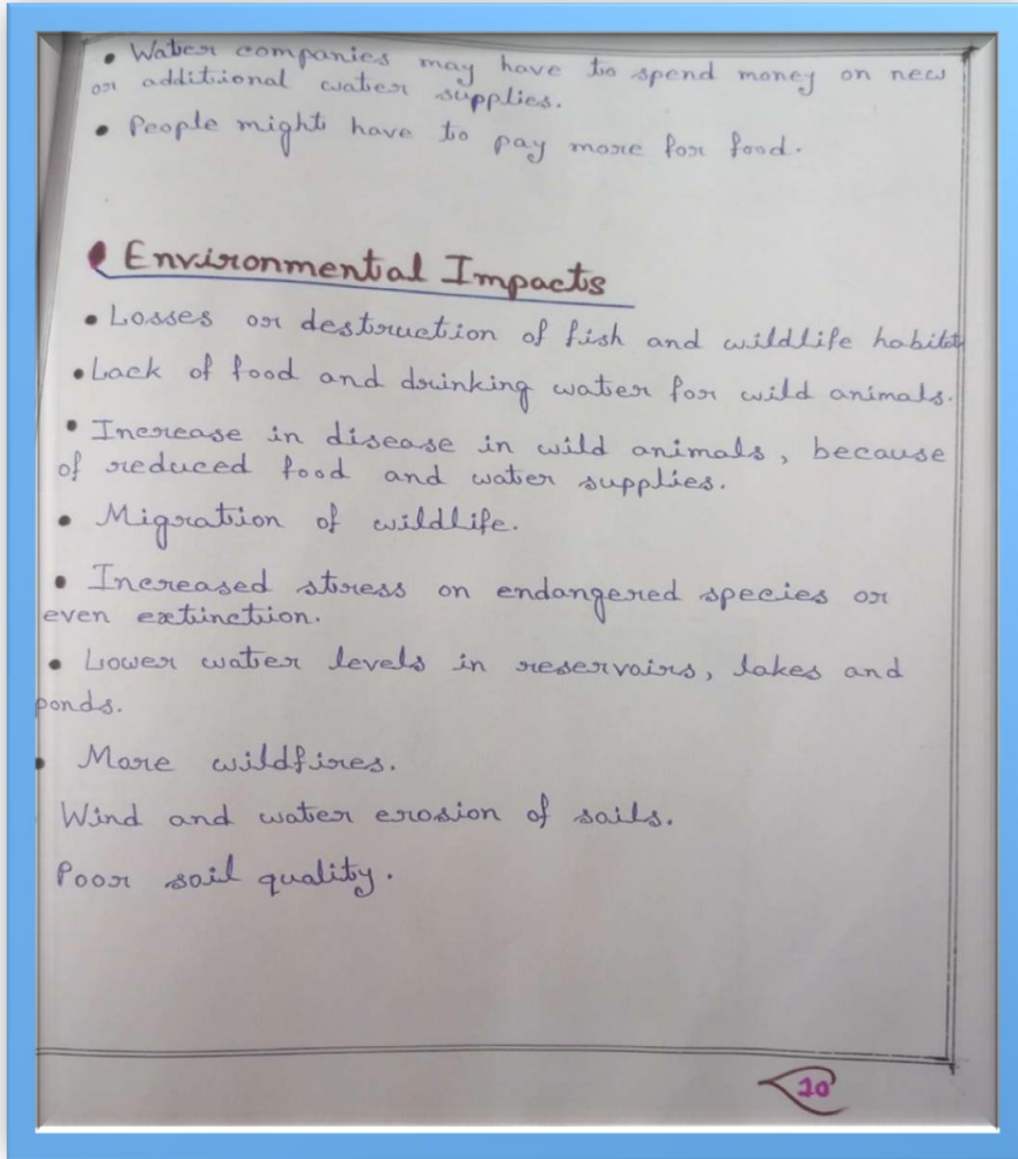 • Water companies may have to spend money on new
or additional water supplies.
• People might have to pay more for food.
Environmental Impacts
• Losses or destruction of fish and wildlife habitat
• Lack of food and drinking water for wild animals.
• Increase in disease in wild animals, because
of reduced food and water supplies.
• Migration of wildlife.
• Increased stress on endangered species or
even extinction.
• Lower water levels in reservairs, lakes and
ponds.
• More wildfires.
Wind and water erosion of soils.
Poor soil quality.
10